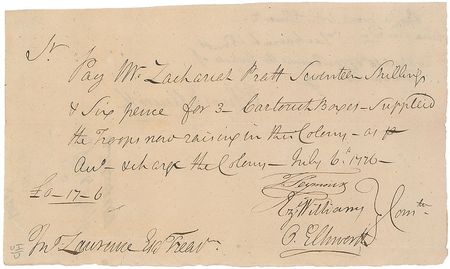 Sr.
Pay Mr. Zachariah Pratt Seventeen Shillings
& Six pence for 3 - Cartouch Boxes - Supplied
the Troops now raising in this Colony - as pr
Acct - & charge the Colony - July 6th 1776 -
£0 - 17 - 6
T Seymour
Ezl Williams
O. Ellsworth
Comtee
Jno Lawrence Esq Treasr.